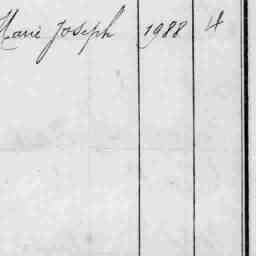 Marie Joseph 1988 4